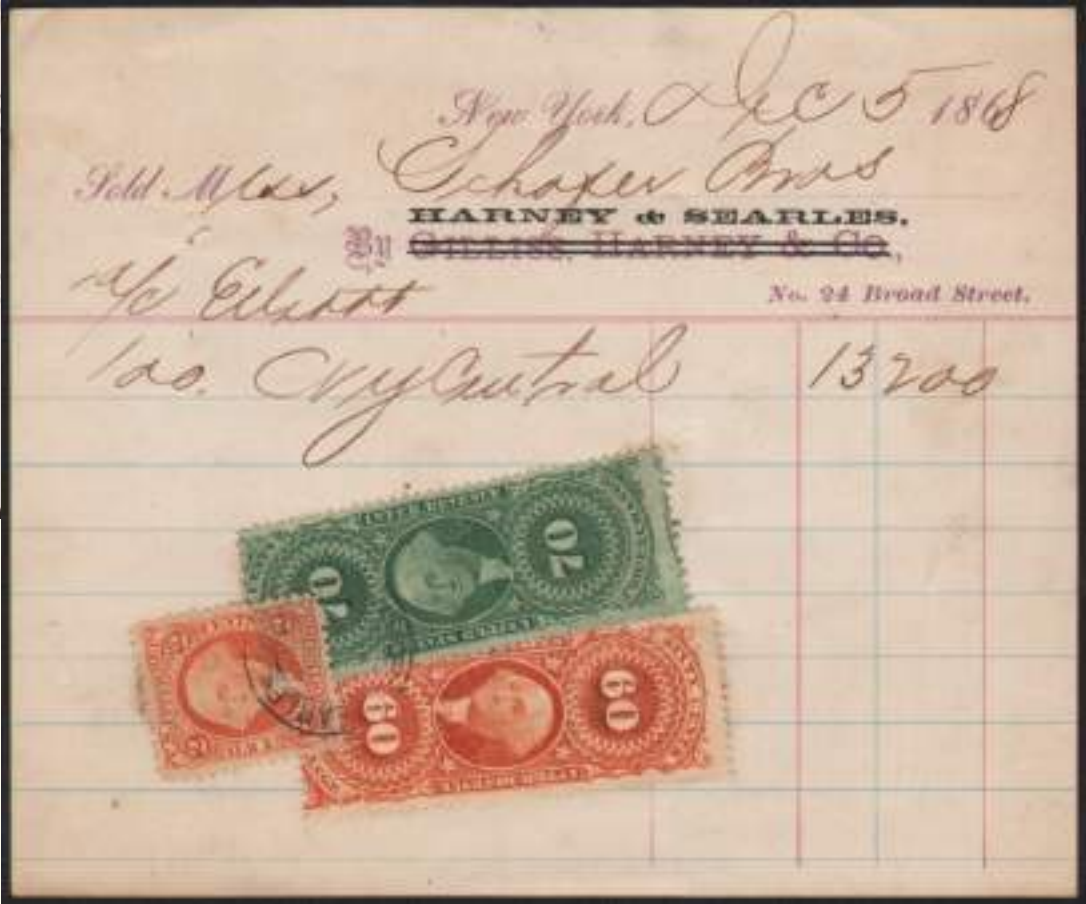 New York, Dec 5 1868
Sold Messrs, Schafer Bros
HARNEY & SEARLES.
By GILLISS, HARNEY & CO,
No. 24 Broad Street.
a/c Elliott
100. NY Central 13200
70 70
60 60